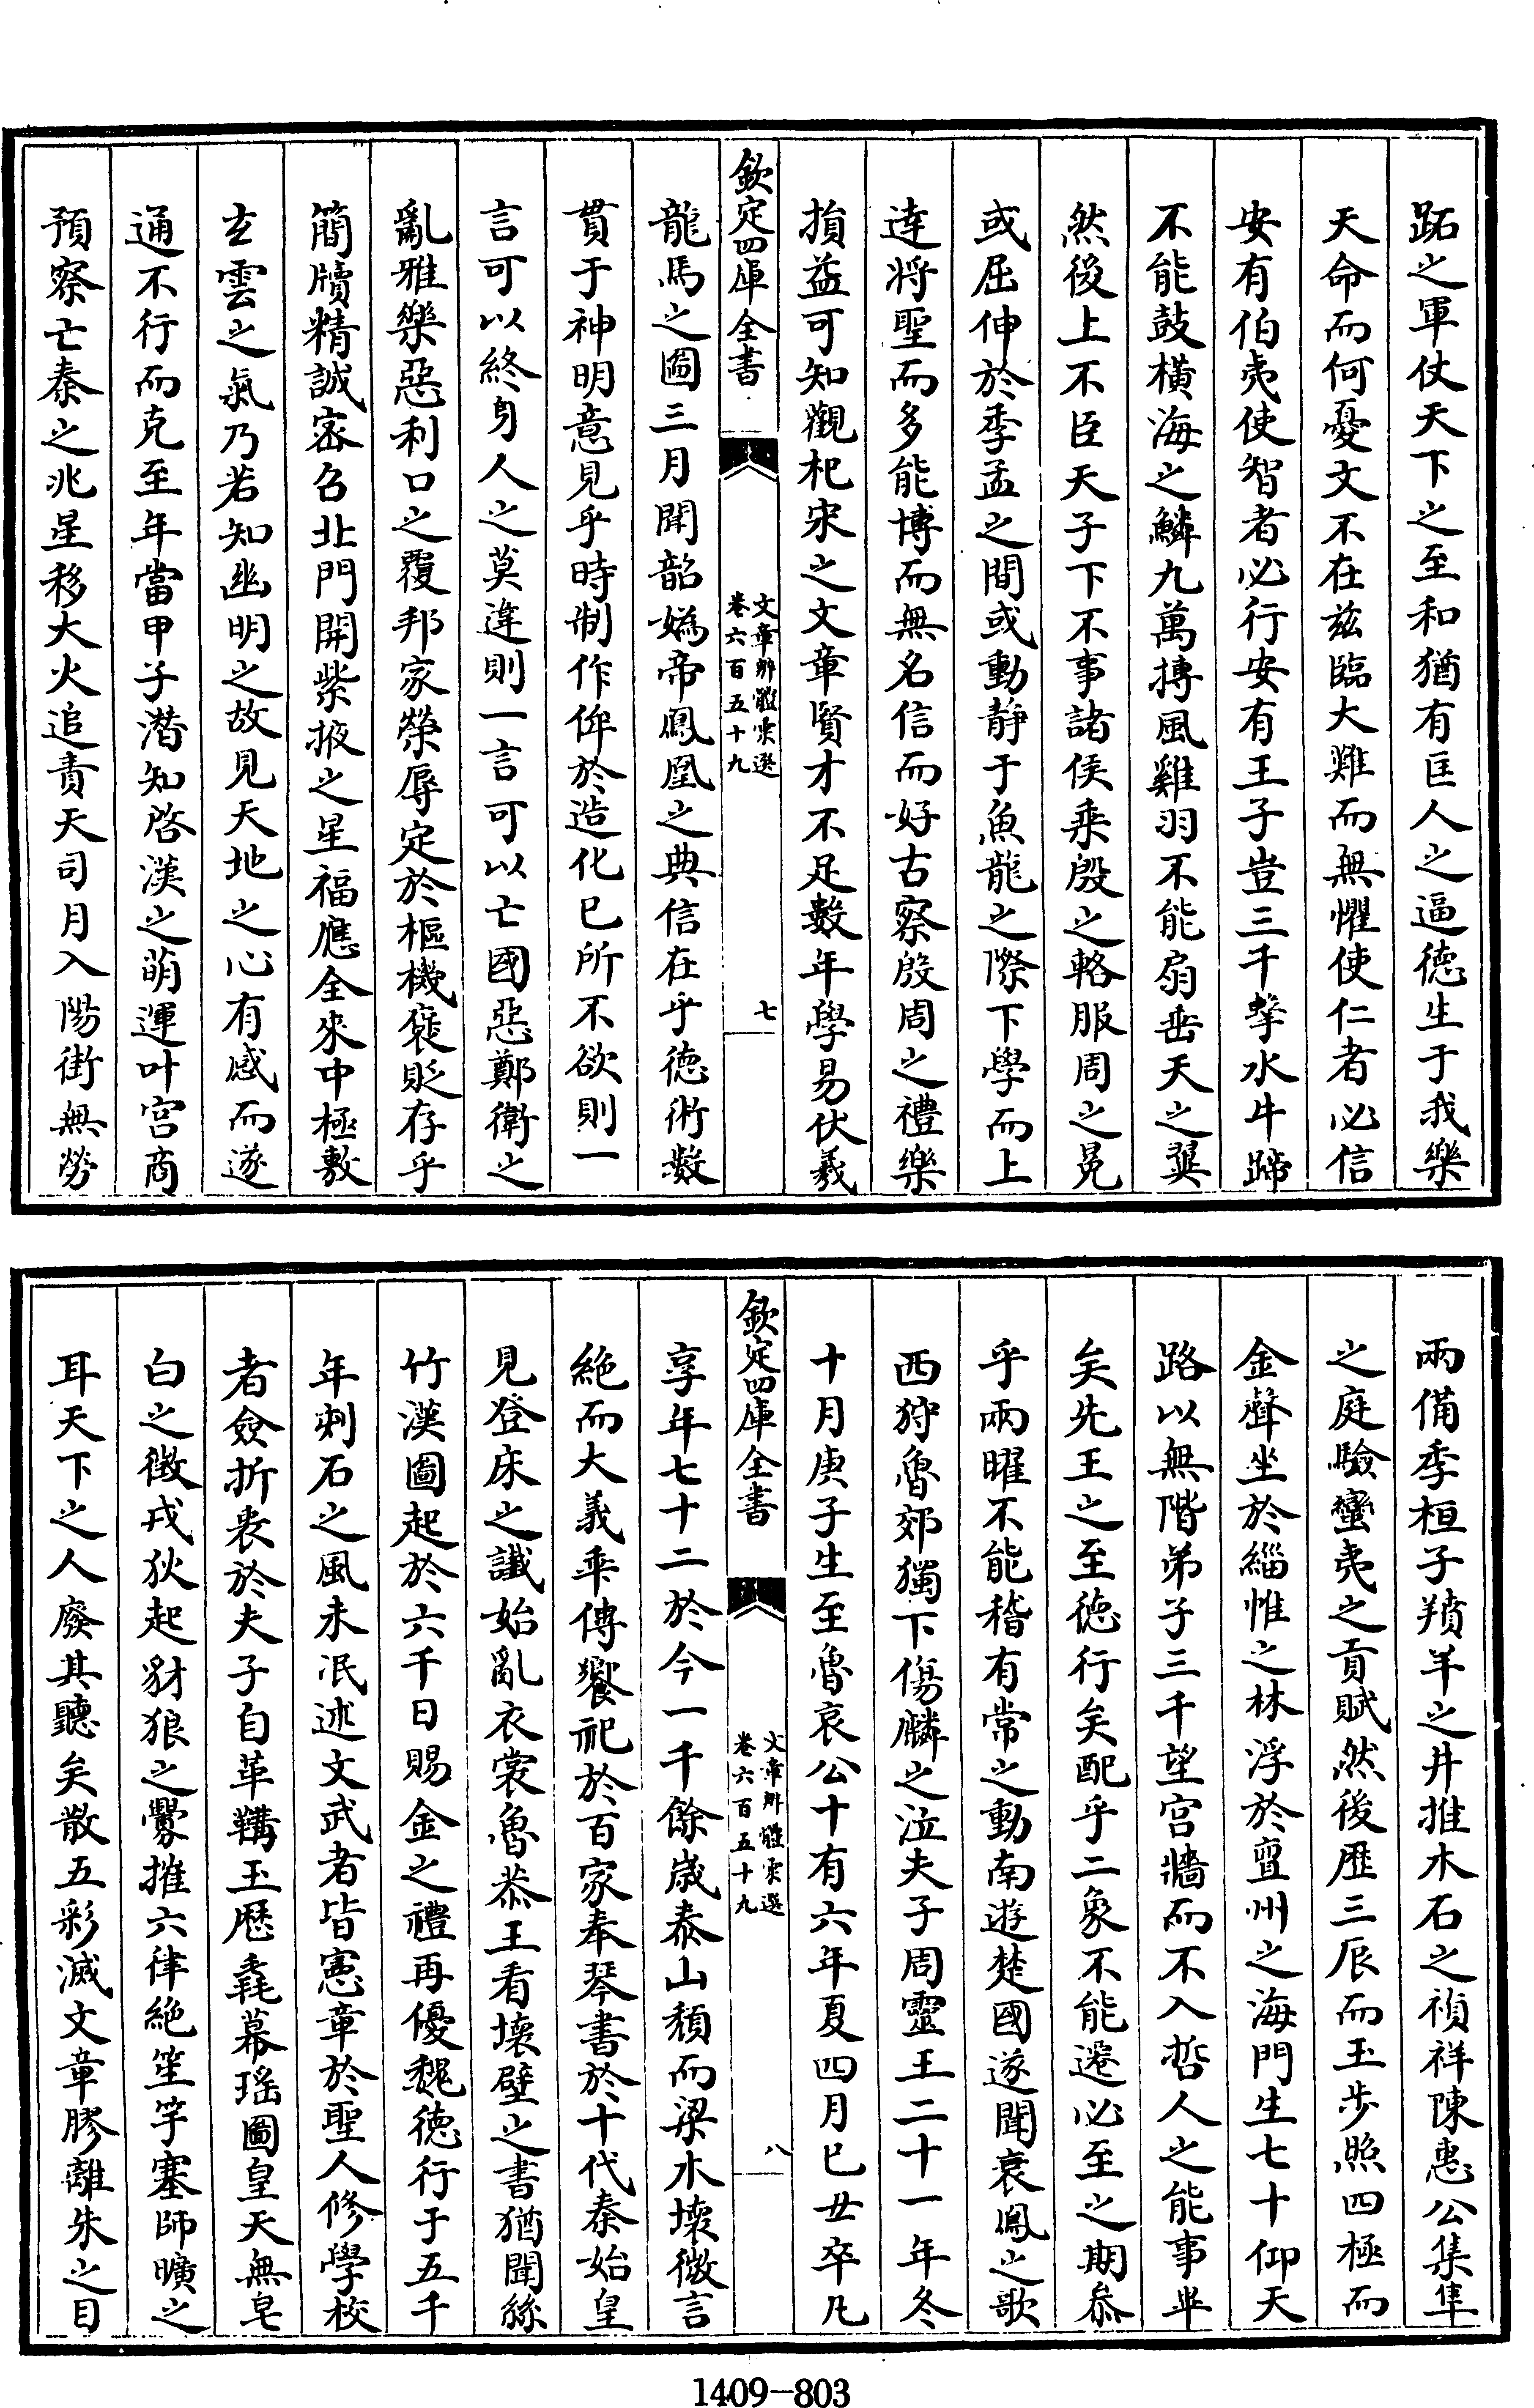 跖之軍仗天下之至和猶有匡人之逼徳生于我樂
天命而何憂文不在兹臨大難而無懼使仁者必信
安有伯夷使智者必行安有王子豈三千擊水牛蹄
不能鼓横海之鱗九萬摶風雞羽不能扇垂天之翼
然後上不臣天子下不事諸侯乗殷之輅服周之冕
或屈伸於季孟之間或動靜于魚龍之際下學而上
達將聖而多能博而無名信而好古察殷周之禮樂
損益可知觀杞宋之文章賢才不足數年學易伏羲
欽定四庫全書
文章辨體彚選
卷六百五十九
七
龍馬之圖三月聞韶媯帝鳳凰之典信在乎徳術數
貫于神明意見乎時制作侔於造化已所不欲則一
言可以終身人之莫違則一言可以亡國惡鄭衛之
亂雅樂惡利口之覆邦家榮辱定於樞機褒貶存乎
簡牘精誠宻召北門開紫掖之星福應全來中極敷
玄雲之氣乃若知幽明之故見天地之心有感而遂
通不行而克至年當甲子潜知啓漢之萌運叶宫商
預察亡秦之兆星移大火追責天司月入陽街無勞
兩備季桓子羵羊之井推木石之禎祥陳惠公集隼
之庭驗蠻夷之貢賦然後歴三辰而玉步照四極而
金聲坐於緇惟之林浮於亶州之海門生七十仰天
路以無階弟子三千望宫牆而不入哲人之能事畢
矣先王之至徳行矣配乎二象不能遷必至之期恭
乎兩曜不能稽有常之動南遊楚國遂聞衰鳳之歌
西狩魯郊獨下傷麟之泣夫子周靈王二十一年冬
十月庚子生至魯哀公十有六年夏四月已丑卒凡
欽定四庫全書
文章辨體彚選
卷六百五十九
八
享年七十二於今一千餘歲泰山頽而梁木壞微言
絶而大義乖傳饗祀於百家奉琴書於十代秦始皇
見登床之讖始亂衣裳魯恭王看壊壁之書猶聞絲
竹漢圖起於六千日賜金之禮再優魏徳行于五千
年刺石之風未泯述文武者皆憲章於聖人修學校
者僉折衷於夫子自革鞲玉歴毳幕瑶圖皇天無皂
白之徴戎狄起豺狼之釁摧六律絶笙竽塞師曠之
耳天下之人廢其聽矣散五彩滅文章膠離朱之目
1409-803